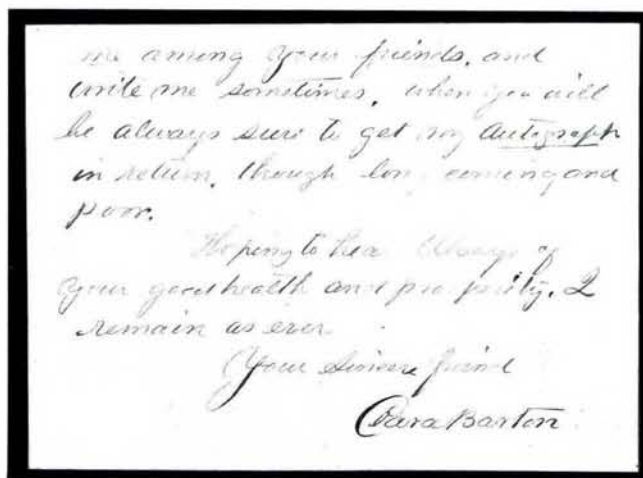 me among your friends, and
write me sometimes, when you will
be always sure to get my autograph
in return, though long coming and
poor.
Hoping to hear always of
your good health and prosperity. I
remain as ever
Your sincere friend
Clara Barton